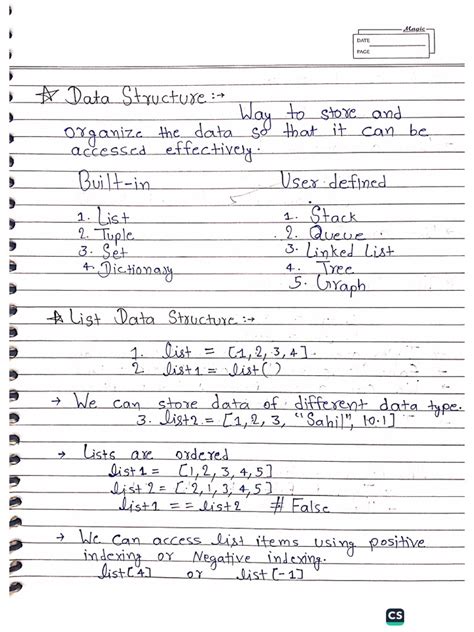 Magic
DATE
PAGE
☆ Data Structure :→
Way to store and
organize the data so that it can be
accessed effectively.
Built-in User defined
1. List 1. Stack
2. Tuple 2. Queue
3. Set 3. Linked List
4. Dictionary 4. Tree
5. Graph
☆ List Data Structure :→
1. list = [1, 2, 3, 4].
2 list1 = list()
→ We can store data of different data type.
3. list2 = [1, 2, 3, "Sahil", 10.1]
→ Lists are ordered
list1 = [1, 2, 3, 4, 5]
list2 = [2, 1, 3, 4, 5]
list1 == list2 # False
→ We can access list items using positive
indexing or Negative indexing.
list[4] or list[-1]
CS